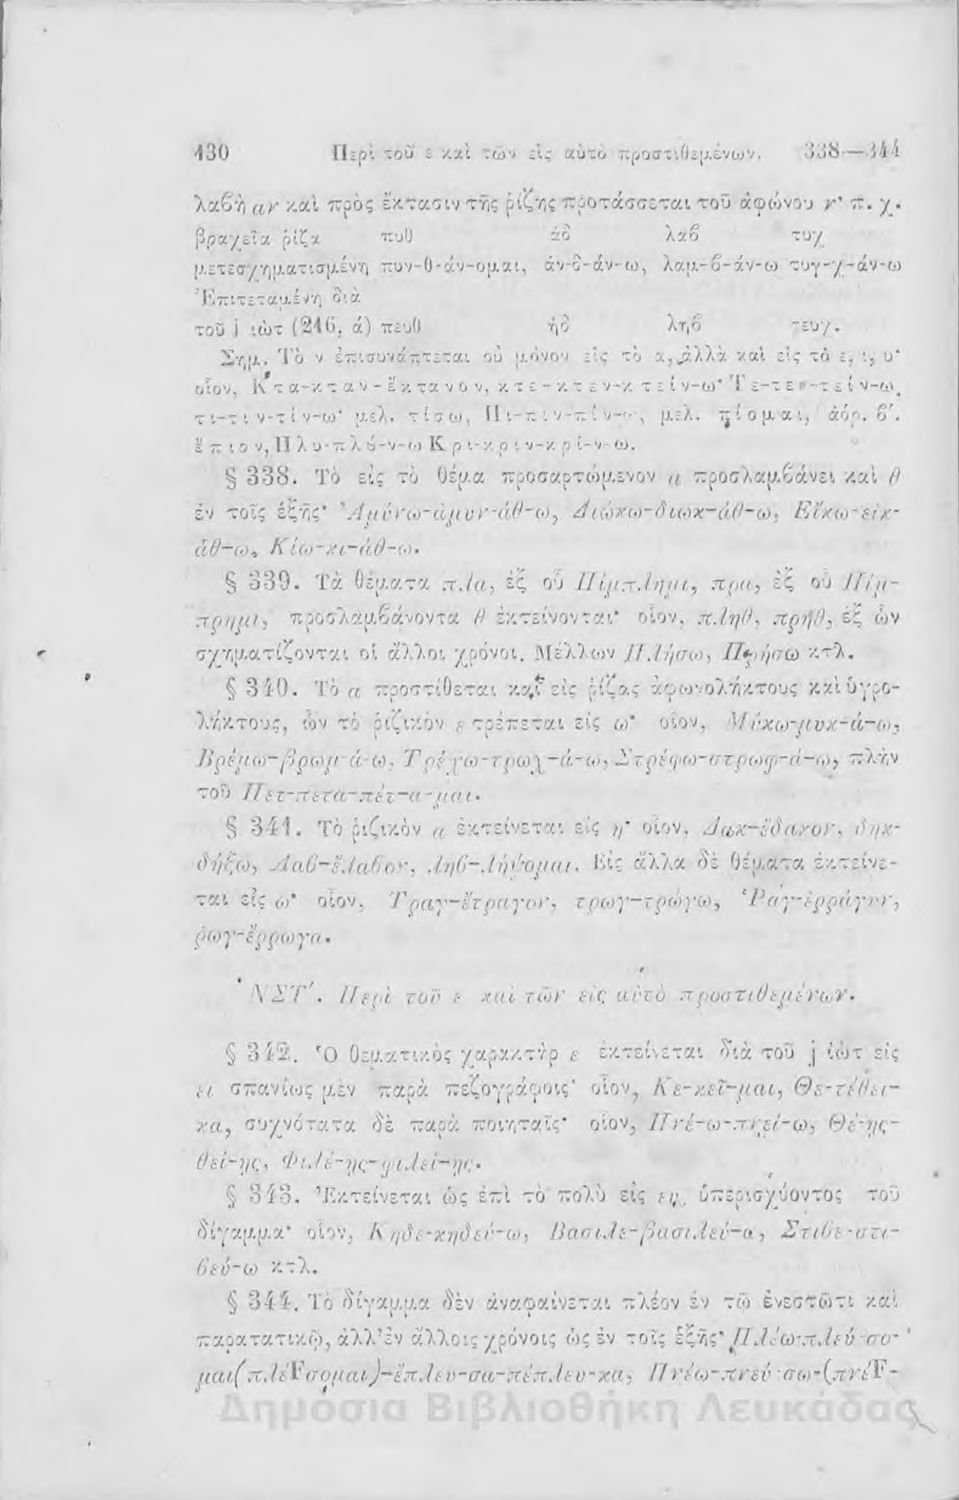 130 Περὶ τοῦ ε καὶ τῶν εἰς αὐτὸ προστιθεμένων. 338—344
λαβὴ αν καὶ πρὸς ἔκτασιν τῆς ῥίζης προτάσσεται τοῦ ἀφώνου ν· π. χ.
βραχεῖα ῥίζα πυθ ἁδ λαβ τυχ
μετεσχηματισμένη πυν-θ-άν-ομαι, ἁν-δ-άν-ω, λαμ-β-άν-ω τυγ-χ-άν-ω
Ἐπιτεταμένη διὰ
τοῦ j ἰὼτ (246, ά) πευθ ἡδ ληβ τευχ.
Σημ. Τὸ ν ἐπισυνάπτεται οὐ μόνον εἰς τὸ α, ἀλλὰ καὶ εἰς τὸ ε, ι, υ·
οἷον, Κτα-κταν-ἔκτανον, κτε-κτεν-κτείν-ω· Τε-τεν-τείν-ω,
τι-τιν-τίν-ω· μελ. τίσω, Πι-πιν-πίν-ω, μελ. πίομαι, ἀόρ. β΄.
ἔπιον, Πλυ-πλύ-ν-ω Κρι-κριν-κρί-ν-ω.
§ 338. Τὸ εἰς τὸ θέμα προσαρτώμενον α προσλαμβάνει καὶ θ
ἐν τοῖς ἑξῆς· Ἀμύνω-ἀμυν-άθ-ω, Διώκω-διωκ-άθ-ω, Εἴκω-εἰκ-
άθ-ω, Κίω-κι-άθ-ω.
§ 339. Τὰ θέματα πλα, ἐξ οὗ Πίμπλημι, πρα, ἐξ οὗ Πίμ-
πρημι, προσλαμβάνοντα θ ἐκτείνονται· οἷον, πληθ, πρηθ, ἐξ ὧν
σχηματίζονται οἱ ἄλλοι χρόνοι. Μέλλων Πλήσω, Πρήσω κτλ.
§ 340. Τὸ α προστίθεται καὶ εἰς ῥίζας ἀφωνολήκτους καὶ ὑγρο-
λήκτους, ὧν τὸ ῥιζικὸν ε τρέπεται εἰς ω· οἷον, Μύκω-μυκ-ά-ω,
Βρέμω-βρωμ-ά-ω, Τρέχω-τρωχ-ά-ω, Στρέφω-στρωφ-ά-ω, πλὴν
τοῦ Πετ-πετα-πέτ-α-μαι.
§ 341. Τὸ ῥιζικὸν α ἐκτείνεται εἰς η· οἷον, Δακ-ἔδακον, δηκ-
δήξω, Λαβ-ἔλαβον, ληβ-λήψομαι. Εἰς ἄλλα δὲ θέματα ἐκτείνε-
ται εἰς ω· οἷον, Τραγ-ἔτραγον, τρωγ-τρώγω, Ῥαγ-ἐρράγην,
ρωγ-ἔρρωγα.
ΝΣΤ΄. Περὶ τοῦ ε καὶ τῶν εἰς αὐτὸ προστιθεμένων.
§ 342. Ὁ θεματικὸς χαρακτὴρ ε ἐκτείνεται διὰ τοῦ j ἰὼτ εἰς
ει σπανίως μὲν παρὰ πεζογράφοις· οἷον, Κε-κεῖ-μαι, Θε-τέθει-
κα, συχνότατα δὲ παρὰ ποιηταῖς· οἷον, Πνέ-ω-πνεί-ω, Θέ-ης-
θεί-ης, Φιλέ-ης-φιλεί-ης.
§ 343. Ἐκτείνεται ὡς ἐπὶ τὸ πολὺ εἰς ευ, ὑπερισχύοντος τοῦ
δίγαμμα· οἷον, Κηδε-κηδεύ-ω, Βασιλε-βασιλεύ-ω, Στιβε-στι-
βεύ-ω κτλ.
§ 344. Τὸ δίγαμμα δὲν ἀναφαίνεται πλέον ἐν τῷ ἐνεστῶτι καὶ
παρατατικῷ, ἀλλ' ἐν ἄλλοις χρόνοις ὡς ἐν τοῖς ἑξῆς· Πλέω-πλεύ-σο-
μαι(πλέFσομαι)-ἔπλευ-σα-πέπλευ-κα, Πνέω-πνεύ-σω-(πνέF-
Δημόσια Βιβλιοθήκη Λευκάδας